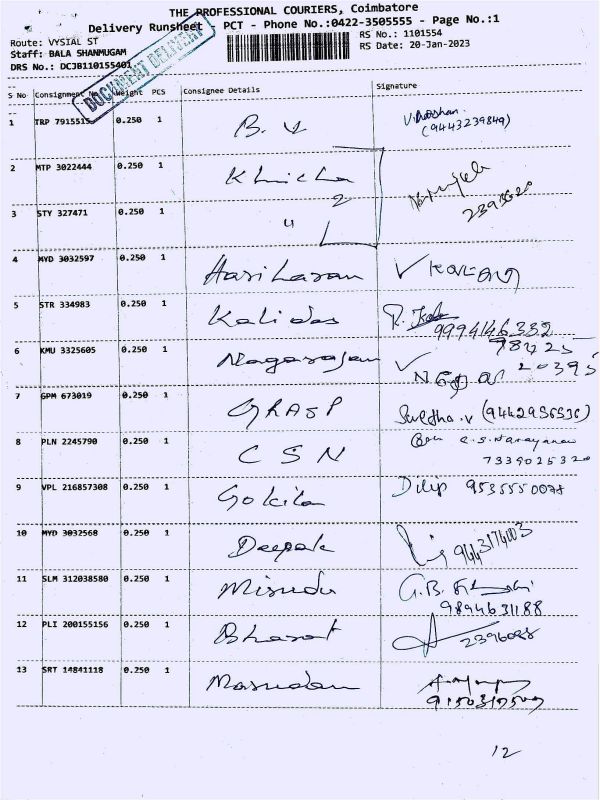 THE PROFESSIONAL COURIERS, Coimbatore
Delivery Runsheet - PCT - Phone No.:0422-3505555 - Page No.:1
Route: VYSIAL ST
RS No.: 1101554
Staff: BALA SHANMUGAM
RS Date: 20-Jan-2023
DRS No.: DCJB110155401
DOCUMENT DELIVERY
S No Consignment No Weight PCS Consignee Details Signature
1 TRP 7915515 0.250 1 B. V
(9443239849)
2 MTP 3022444 0.250 1 Khicha
2
3 STY 327471 0.250 1 "
4 MYD 3032597 0.250 1 Hariharan
5 STR 334983 0.250 1 Kalidas
9994146332
6 KMU 3325605 0.250 1 Nagarajan
98425
20395
7 GPM 673019 0.250 1 GRASP Swetha.v (9442956536)
8 PLN 2245790 0.250 1 CSN C.S. Narayanan
7339025320
9 VPL 216857308 0.250 1 Gokila Dilip 9535550078
10 MYD 3032568 0.250 1 Deepak 9443174003
11 SLM 312038580 0.250 1 G.B.
9894631188
12 PLI 200155156 0.250 1 Bharat 2396088
13 SRT 14841118 0.250 1
12